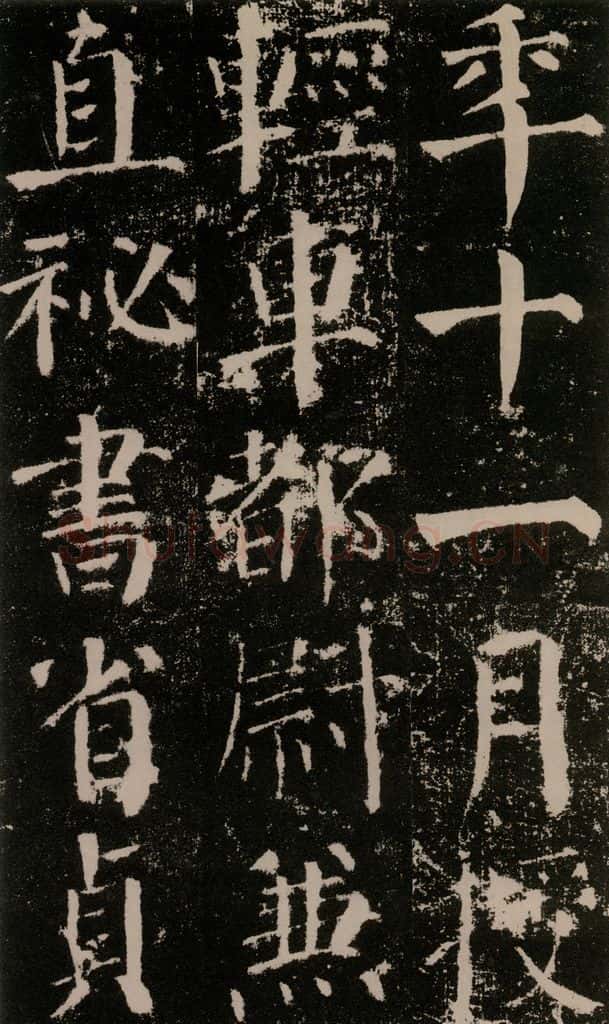 年十一月授
輕車都尉兼
直祕書省貞
Shufawang.CN